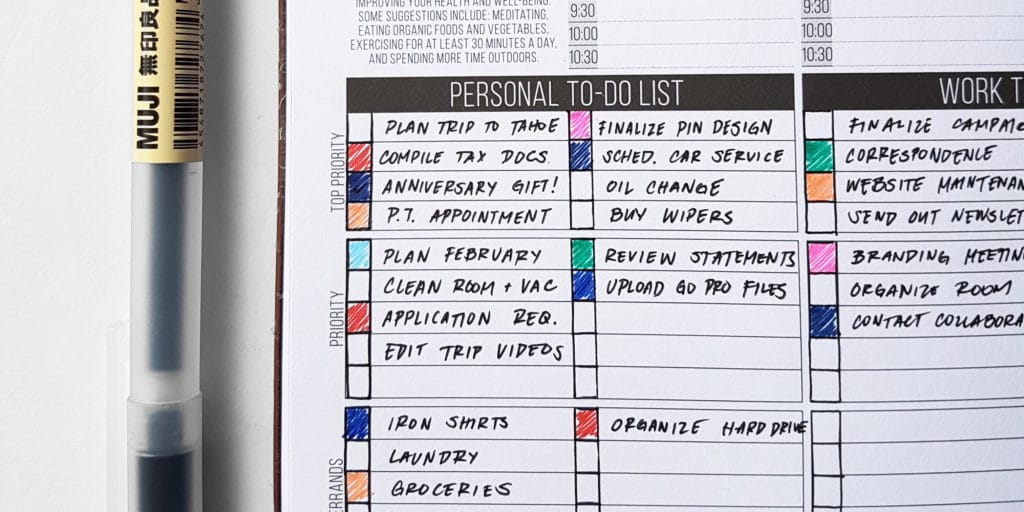 MUJI 無印良品
IMPROVING YOUR HEALTH AND WELL-BEING.
SOME SUGGESTIONS INCLUDE: MEDITATING,
EATING ORGANIC FOODS AND VEGETABLES,
EXERCISING FOR AT LEAST 30 MINUTES A DAY,
AND SPENDING MORE TIME OUTDOORS.
9:30
10:00
10:30
9:30
10:00
10:30
PERSONAL TO-DO LIST
TOP PRIORITY
PLAN TRIP TO TAHOE
COMPILE TAX DOCS.
ANNIVERSARY GIFT!
P.T. APPOINTMENT
FINALIZE PIN DESIGN
SCHED. CAR SERVICE
OIL CHANGE
BUY WIPERS
PRIORITY
PLAN FEBRUARY
CLEAN ROOM + VAC
APPLICATION REQ.
EDIT TRIP VIDEOS
REVIEW STATEMENTS
UPLOAD GO PRO FILES
ERRANDS
IRON SHIRTS
LAUNDRY
GROCERIES
ORGANIZE HARD DRIVE
WORK T
FINALIZE CAMPAIG
CORRESPONDENCE
WEBSITE MAINTENAN
SEND OUT NEWSLET
BRANDING MEETIN
ORGANIZE ROOM
CONTACT COLLABORA